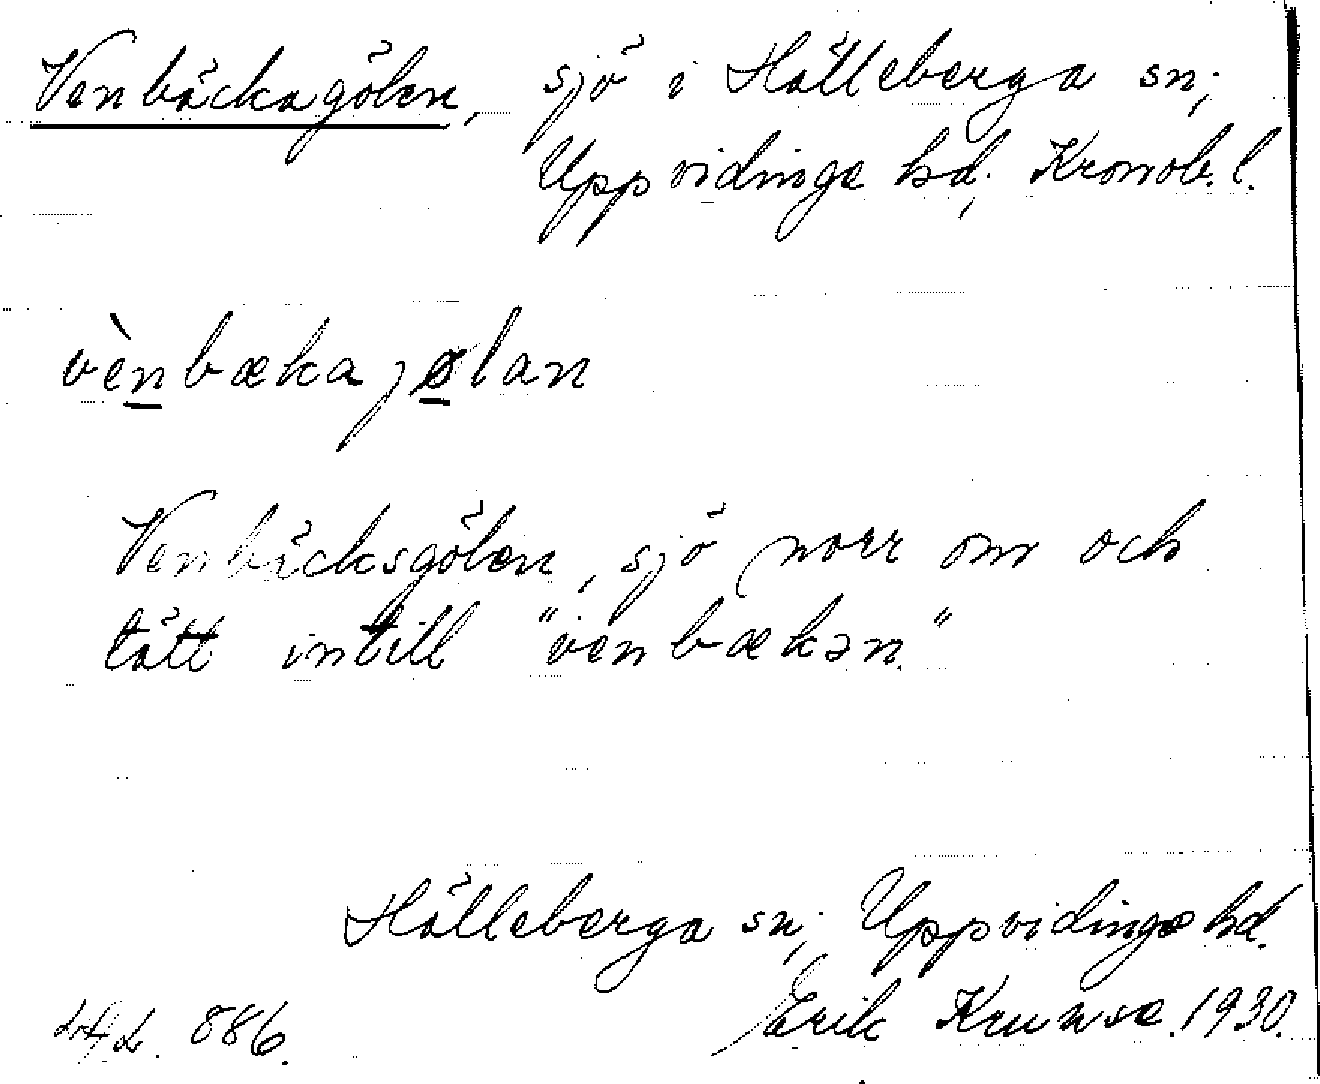 Venbäckagölen, sjö i Hälleberga sn;
Uppvidinge hd; Kronob. l.
vènbækajølan
Venbäcksgölen, sjö norr om och
tätt intill "venbækən"
Hälleberga sn; Uppvidinge hd.
886. Erik Krunse. 1930.